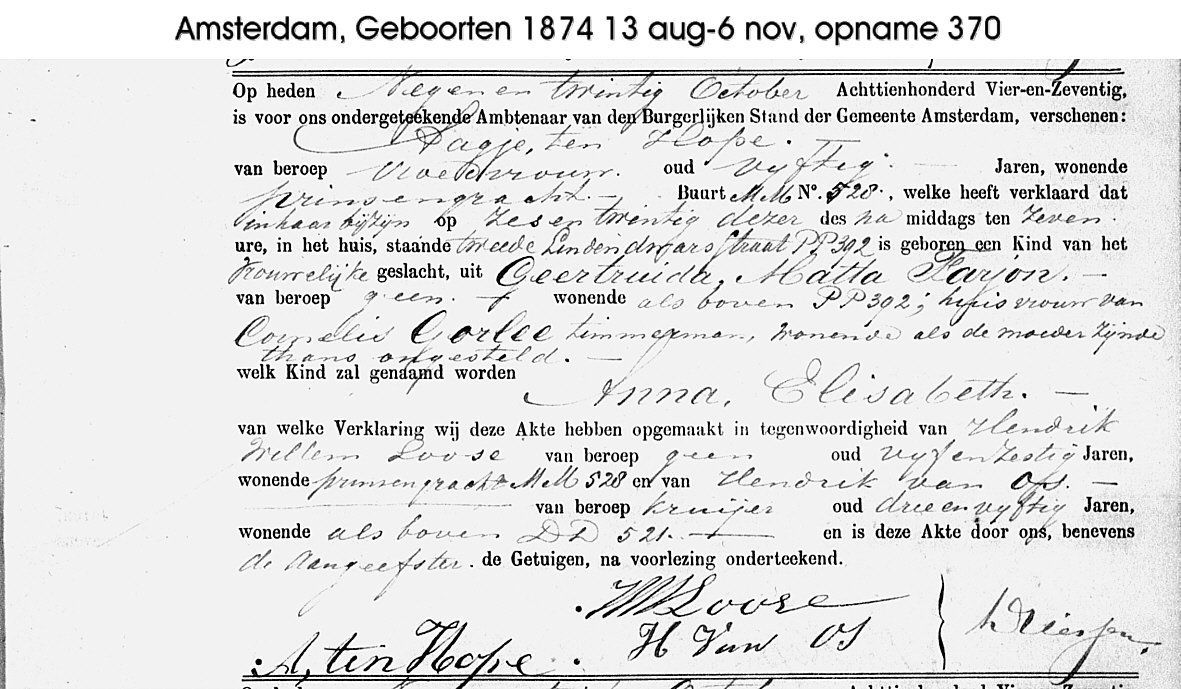 Amsterdam, Geboorten 1874 13 aug-6 nov, opname 370
Op heden Negen en twintig October Achttienhonderd Vier-en-Zeventig,
is voor ons ondergeteekende Ambtenaar van den Burgerlijken Stand der Gemeente Amsterdam, verschenen:
Aagje, ten Hope.
van beroep Vroedvrouw. oud vyftig. — Jaren, wonende
prinsengracht. — Buurt MM No. 528., welke heeft verklaard dat
in haar bijzijn op Zes en twintig dezer des na middags ten Zeven.
ure, in het huis, staande tweede Lindendwarsstraat PP 392 is geboren een Kind van het
Vrouwelijke geslacht, uit Geertruida, Matta Farjon. —
van beroep geen. — wonende als boven PP 392; huisvrouw van
Cornelis Gorlee timmerman, wonende als de moeder zijnde
thans ongesteld. —
welk Kind zal genaamd worden
Anna, Elisabeth. —
van welke Verklaring wij deze Akte hebben opgemaakt in tegenwoordigheid van Hendrik
Willem Loose van beroep geen oud vyf en Zestig Jaren,
wonende prinsengracht MM 528 en van Hendrik van Os. —
van beroep kruijer oud drie en vyftig Jaren,
wonende als boven DD 521. — en is deze Akte door ons, benevens
de Aangeefster. de Getuigen, na voorlezing onderteekend.
HW Loose
H Van OS
A, ten Hope.
Achttienhonderd Vier-en-Zeventig